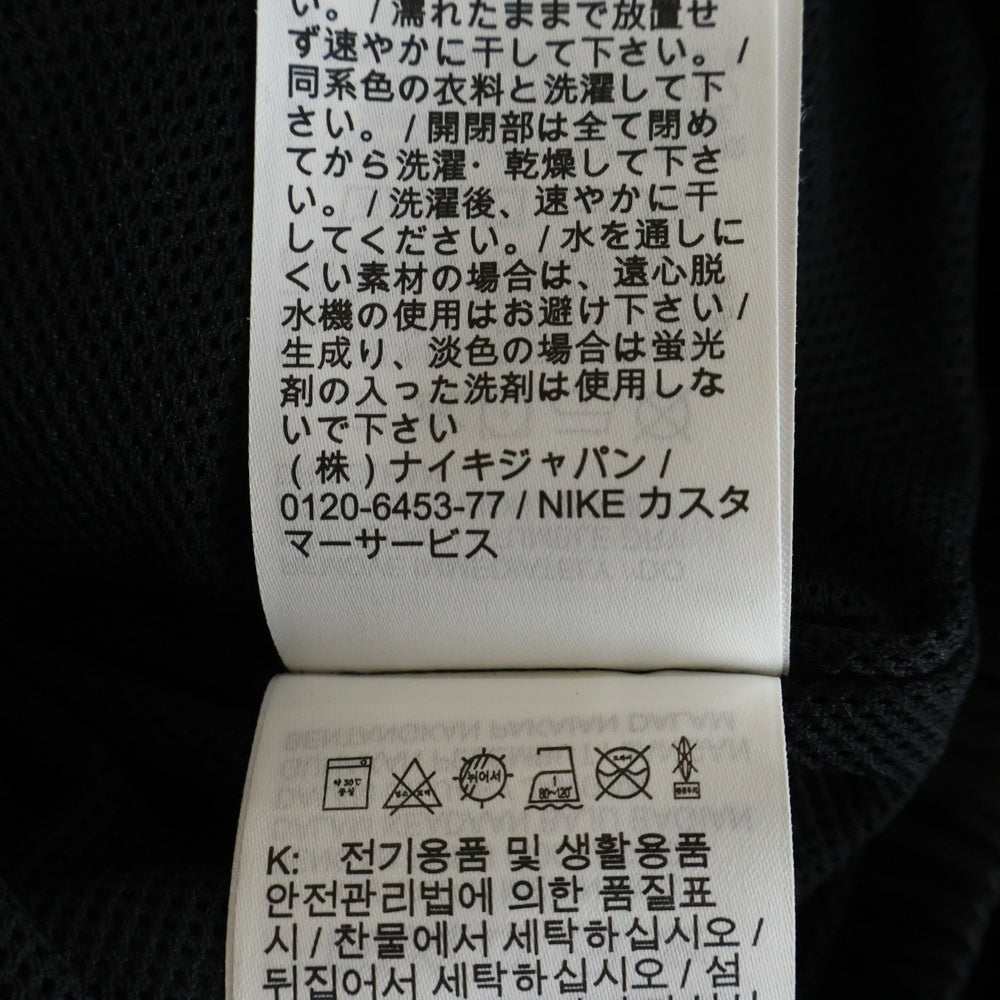 い。 / 濡れたままで放置せ
ず速やかに干して下さい。 /
同系色の衣料と洗濯して下
さい。 / 開閉部は全て閉め
てから洗濯・乾燥して下さ
い。 / 洗濯後、速やかに干
してください。/ 水を通しに
くい素材の場合は、遠心脱
水機の使用はお避け下さい /
生成り、淡色の場合は蛍光
剤の入った洗剤は使用しな
いで下さい
(株) ナイキジャパン /
0120-6453-77 / NIKE カスタ
マーサービス
약 30℃ 중성
뉘어서
1 80~120℃
드라이
K: 전기용품 및 생활용품
안전관리법에 의한 품질표
시 / 찬물에서 세탁하십시오 /
뒤집어서 세탁하십시오 / 섬